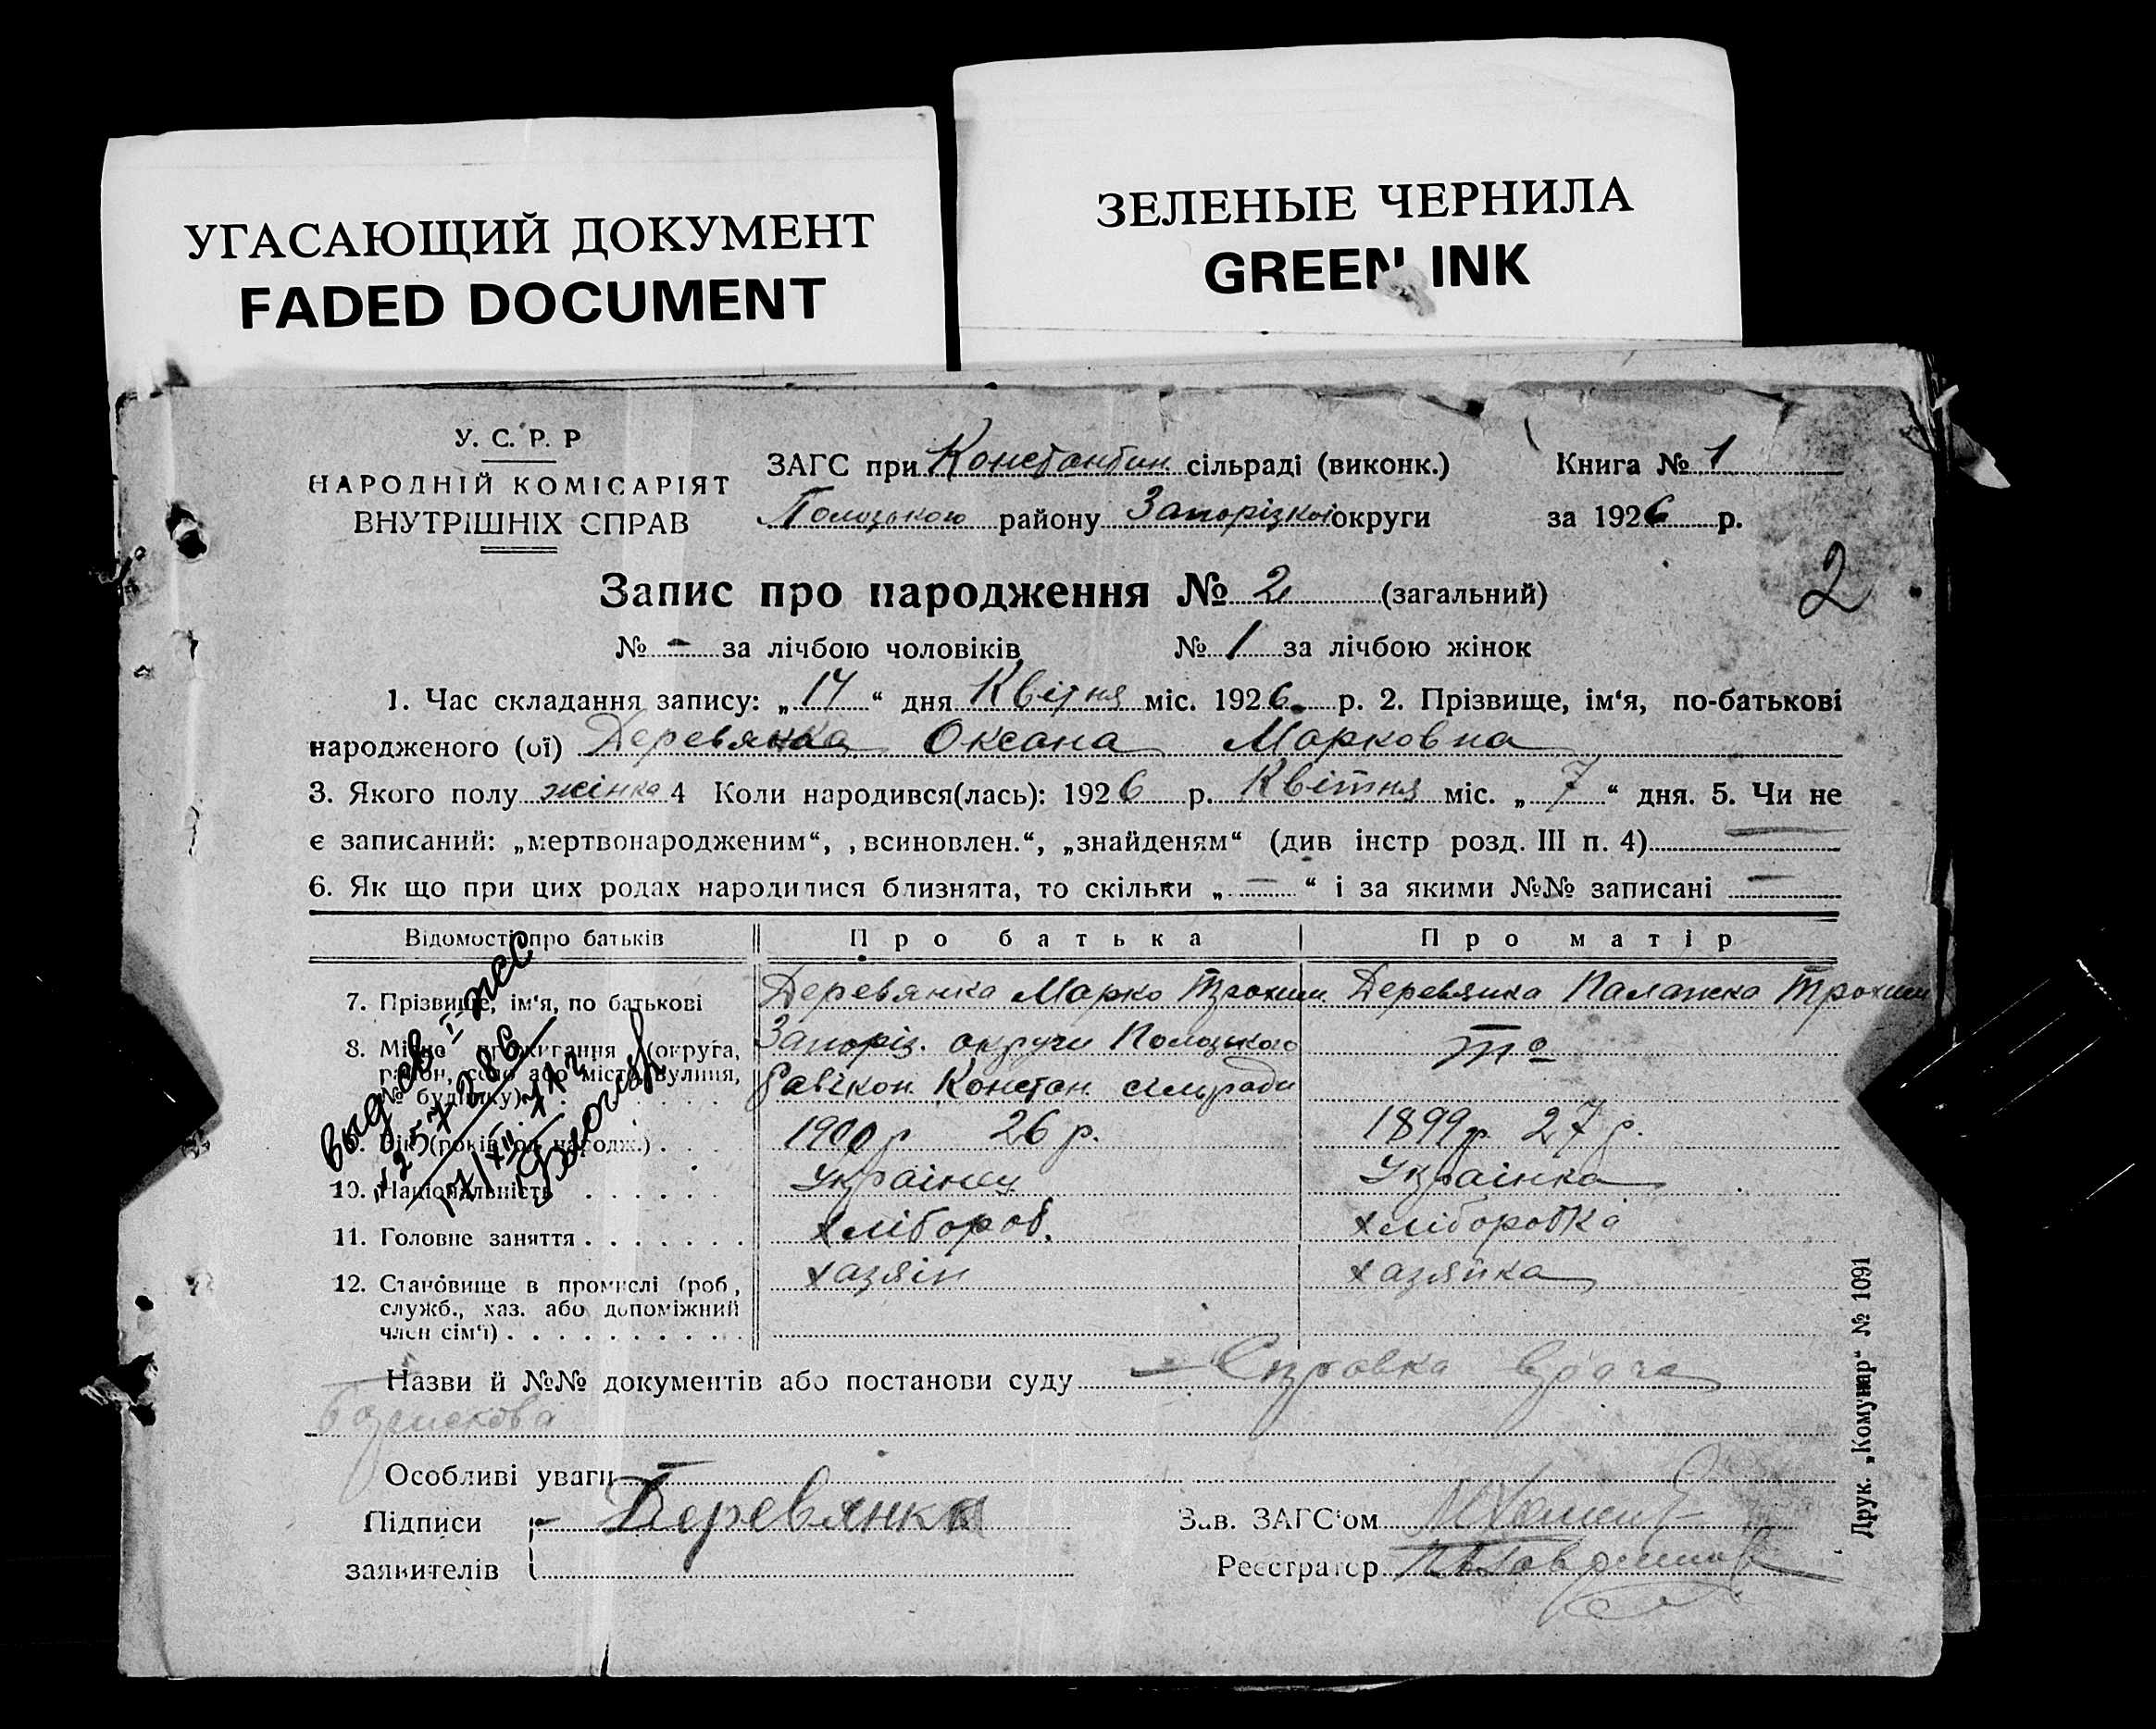 УГАСАЮЩИЙ ДОКУМЕНТ
FADED DOCUMENT
ЗЕЛЕНЫЕ ЧЕРНИЛА
GREEN INK
У. С. Р. Р
НАРОДНІЙ КОМІСАРІЯТ
ВНУТРІШНІХ СПРАВ
ЗАГС при Константин сільраді (виконк.)
Полозького району Запорізкої округи
Книга № 1
за 1926 р.
2
Запис про народження № 2 (загальний)
№ - за лічбою чоловіків № 1 за лічбою жінок
1. Час складання запису: „ 14 “ дня Квітня міс. 1926. р. 2. Прізвище, ім‘я, по-батькові
народженого (ої) Деревянка Оксана Марковна
3. Якого полу жінка 4 Коли народився(лась): 1926 р. Квітня міс. „ 7 “ дня. 5. Чи не
є записаний: „мертвонародженим“, ‚всиновлен.“, „знайденям“ (див інстр розд. III п. 4) —
6. Як що при цих родах народилися близнята, то скільки „ — “ і за якими №№ записані —
Відомості про батьків Про батька Про матір
7. Прізвище, ім‘я, по батькові Деревянка Марко Трохим Деревянка Палажка Трохим
8. Місце проживання (округа, Запоріз. округи Полозького то
район, село або місто, вулиця,
№ будинку) Констан. сільради
9. Вік (років од народж.) 1900 р 26 р. 1899 р 27 р.
10. Національність Українец Українка
11. Головне заняття хлібороб. хліборобка
12. Становище в промислі (роб, хазяін хазяйка
служб., хаз. або допоміжний
член сім‘ї)
Назви й №№ документів або постанови суду — Справка врача
Особливі уваги —
Підписи Деревянка Зав. ЗАГС‘ом
заявителів Реєстратор
Друк. „Комунар“ № 1091